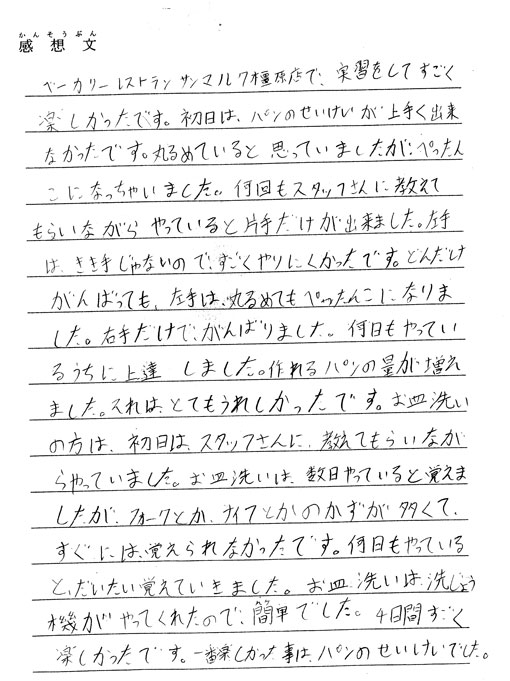 かんそうぶん
感想文
ベーカリーレストランサンマルク橿原店で、実習をしてすごく
楽しかったです。初日は、パンのせいけいが上手く出来
なかったです。丸るめていると思っていましたが、ぺったん
こになっちゃいました。何回もスタッフさんに教えて
もらいながらやっていると片手だけが出来ました。左手
は、きき手じゃないので、すごくやりにくかったです。どんだけ
がんばっても、左手は、丸るめてもぺったんこになりま
した。右手だけで、がんばりました。何日もやってい
るうちに上達しました。作れるパンの量が増え
ました。それは、とてもうれしかったです。お皿洗い
の方は、初日は、スタッフさんに、教えてもらいなが
らやっていました。お皿洗いは、数日やっていると覚えま
したが、フォークとか、ナイフとかのかずが多くて、
すぐには、覚えられなかったです。何日もやっている
と、だいたい覚えていきました。お皿洗いは、洗じょう
機がやってくれたので、簡単でした。4日間すごく
楽しかったです。一番楽しかった事は、パンのせいけいでした。